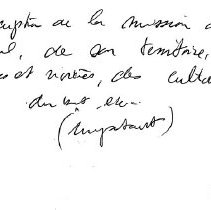 ription de la mission d
l, de son territoire,
es et rivières, des cult
du sol, etc...
(Important)